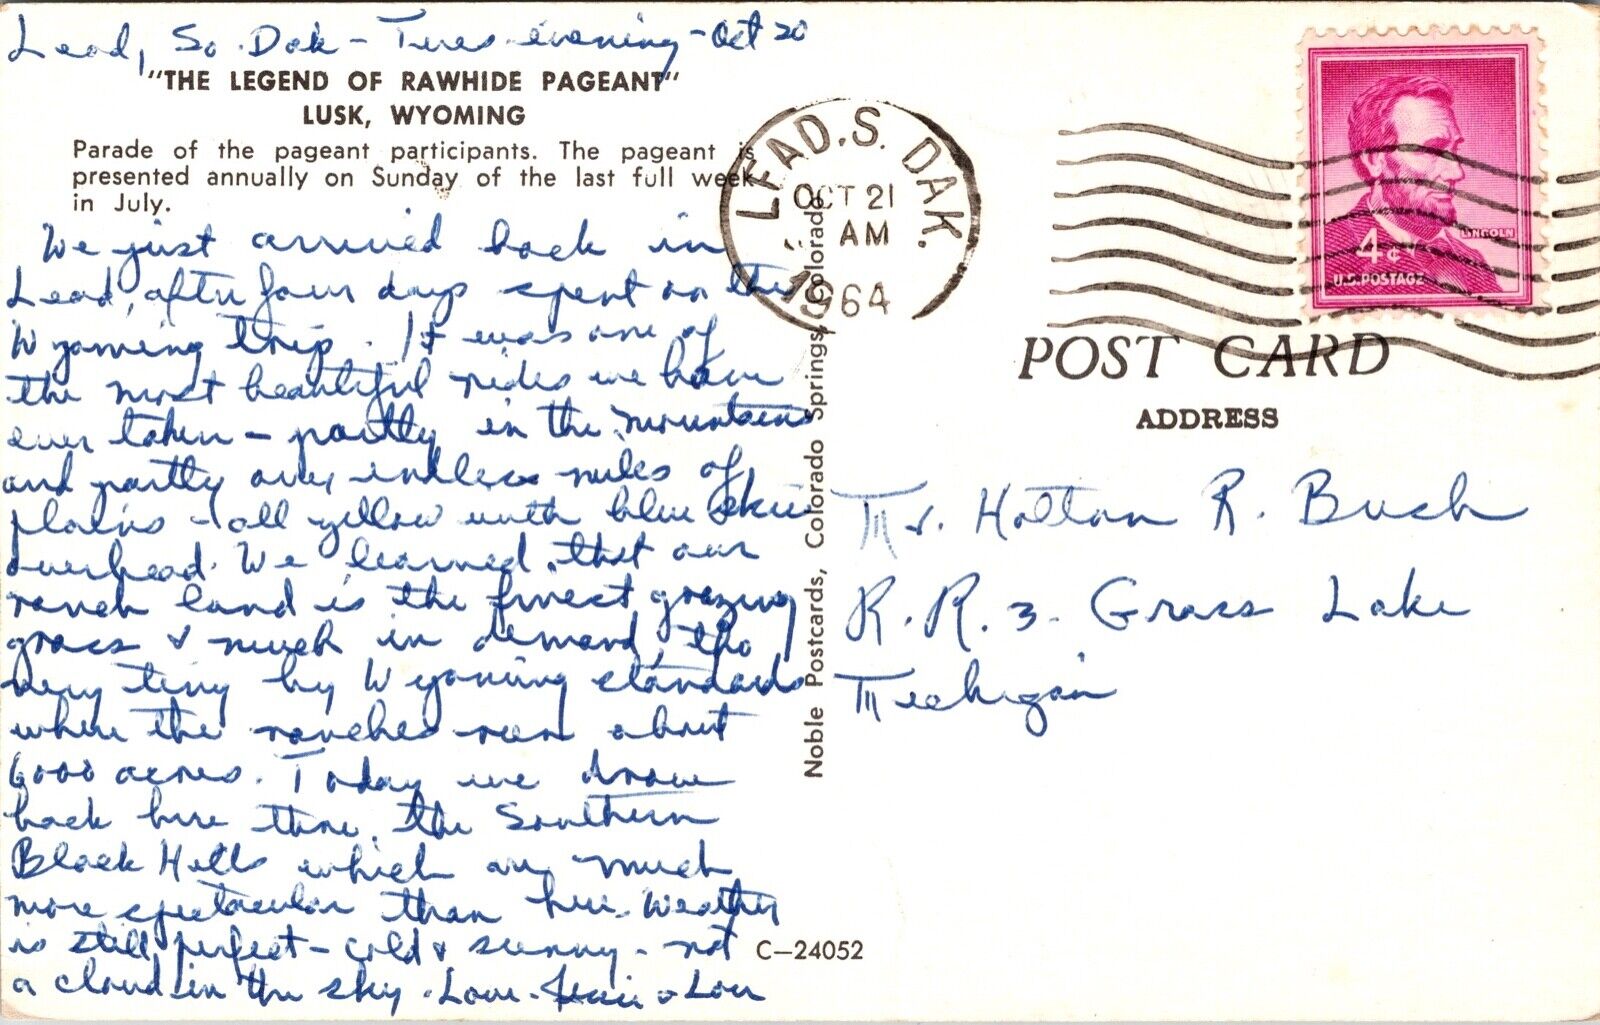 Lead, So. Dak - Tues. evening - Oct 20
"THE LEGEND OF RAWHIDE PAGEANT"
LUSK, WYOMING
Parade of the pageant participants. The pageant is
presented annually on Sunday of the last full week
in July.
We just arrived back in
Lead, after four days spent on the
Wyoming trip. It was one of
the most beautiful rides we have
ever taken - partly in the mountains
and partly over endless miles of
plains - all yellow with blue skies
overhead. We learned that our
ranch land is the finest grazing
grass & much in demand, tho
very tiny by Wyoming standards
where the ranches run about
6000 acres. Today we drove
back here thru the Southern
Black Hills which are much
more spectacular than here. Weather
is still perfect - cold & sunny - not
a cloud in the sky. Love - & Lou
C-24052
Noble Postcards, Colorado Springs, Colorado
LEAD, S. DAK.
OCT 21
AM
1964
LINCOLN
4¢
U.S. POSTAGE
POST CARD
ADDRESS
Mr. Holton R. Buch
R. R. 3. Grass Lake
Michigan